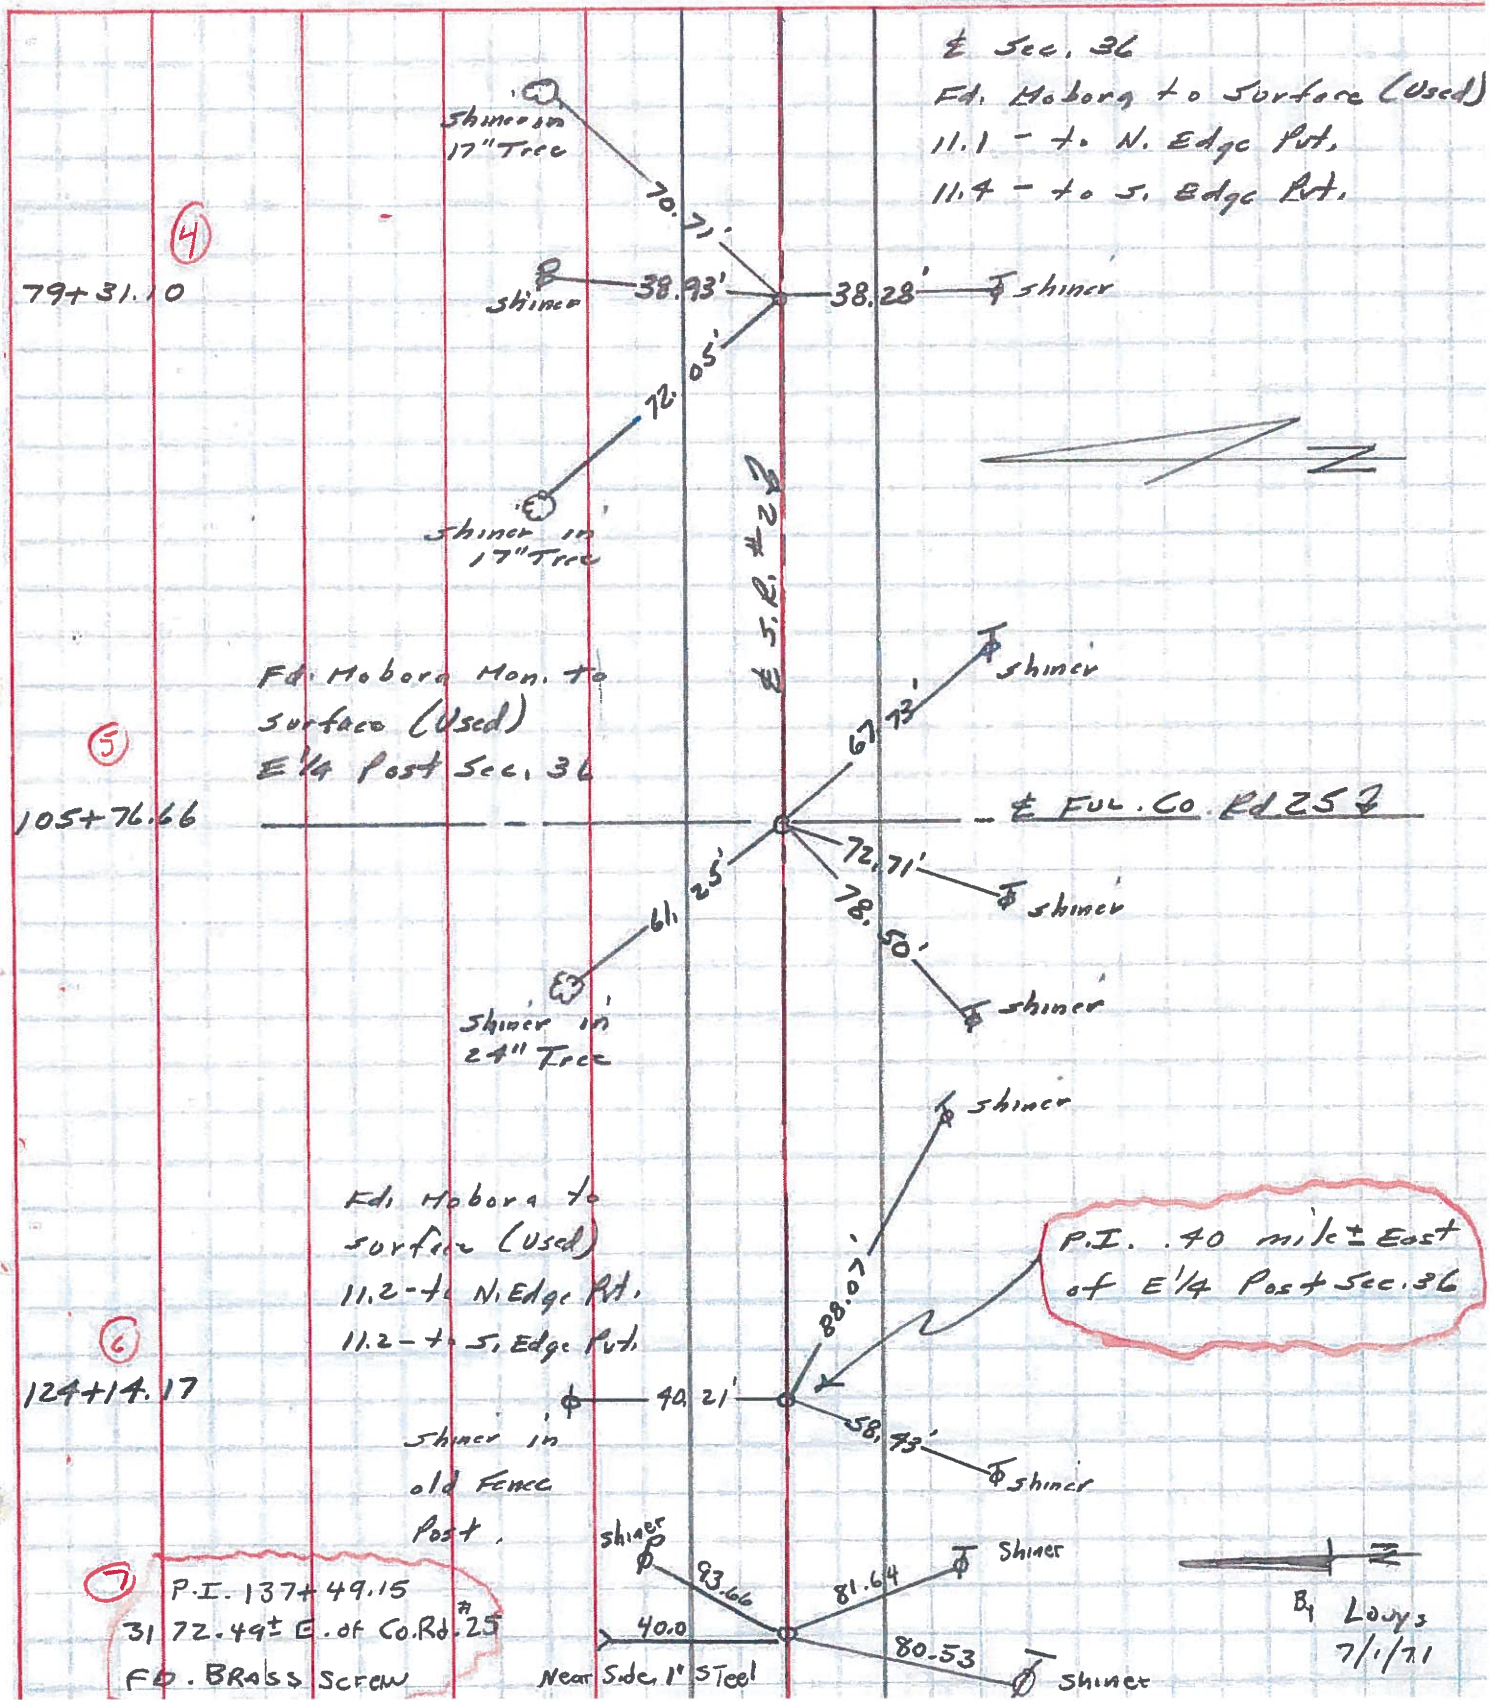 ℄ Sec. 36
Fd. Moborn to Surface (Used)
11.1 - to N. Edge Pvt.
11.4 - to S. Edge Pvt.
shiner in
17" Tree
70.
4
79+31.10
shiner
38.93'
38.28'
shiner
72.05'
shiner in
17" Tree
N
℄ S.R. #2
shiner
67.73'
Fd. Moborn Mon. to
surface (Used)
E 1/4 Post Sec. 36
5
105+76.66
℄ Ful. Co. Rd 25
72.71'
shiner
78.50'
shiner
61.25'
shiner in
24" Tree
shiner
88.07'
Fd. Moborn to
surface (Used)
11.2 - to N. Edge Pvt.
11.2 - to S. Edge Pvt.
P.I. .40 mile ± East
of E 1/4 Post Sec. 36
6
124+14.17
40.21'
shiner in
old Fence
Post.
58.93'
shiner
7
P.I. 137+49.15
3172.49± E. of Co. Rd. #25
FD. BRASS Screw
shiner
93.66
81.64
Shiner
40.0
Near Side 1" Steel
80.53
Shiner
N
By Louys
7/1/71